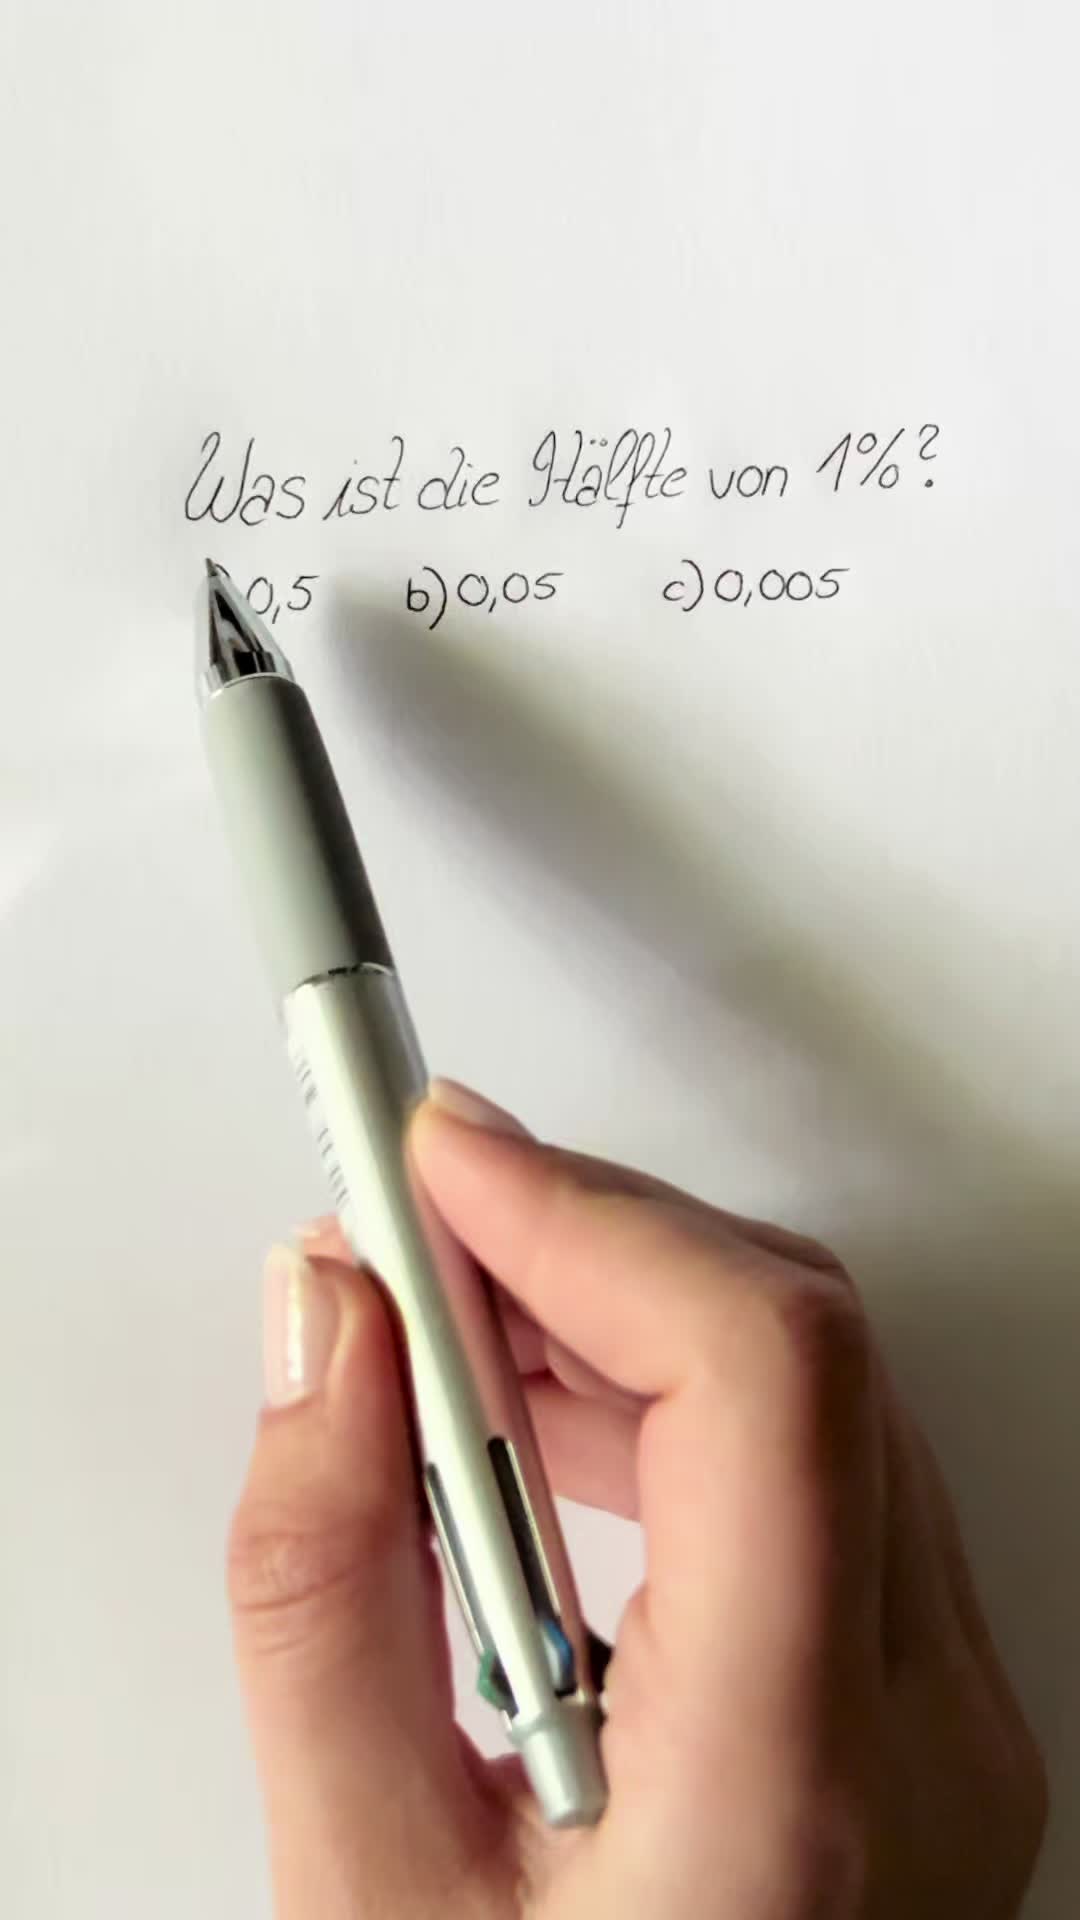 Was ist die Hälfte von 1%?
0,5 b) 0,05 c) 0,005